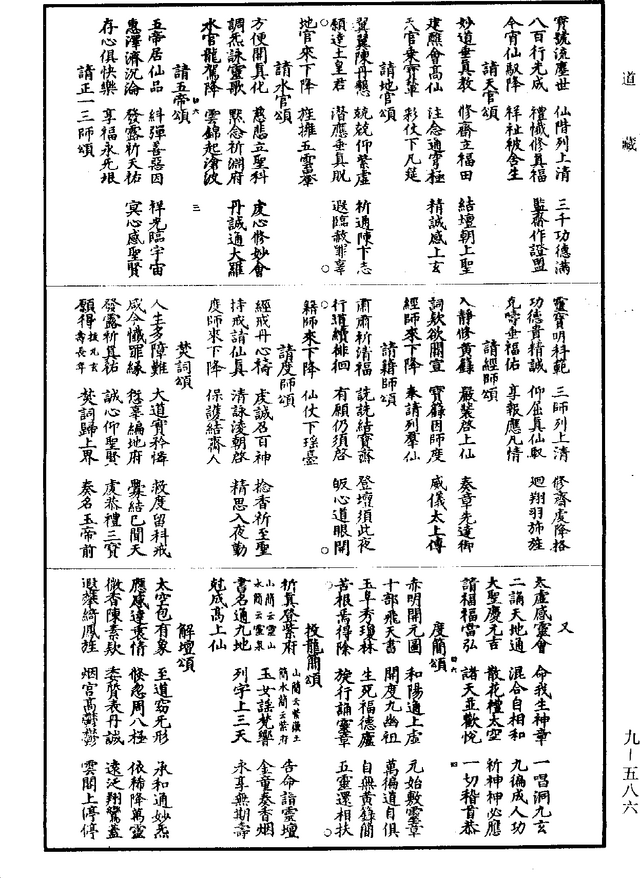 道藏
寶號流塵世　仙階列上清　三千功德滿
八百行光成　禮懺修真福　監齋作證盟
今宵仙馭降　祥社被含生
請天官頌
妙道垂真教　修齋立福田　結壇朝上聖
建醮會高仙　注念通宵極　精誠感上玄
天官乘寶輦　彩仗下凡筵
請地官頌
翼翼陳丹懇　兢兢仰紫虛　祈過陳下志
願達土皇君　潛應垂真貺　遐臨赦罪辜
地官來下降　旌擁五雲轝
請水官頌
方便開真化　慈悲立聖科　虔心修妙會
調炁詠靈歌　默念祈淵府　丹誠通大羅
水官龍駕降　雲錦起滄波
請五帝頌　四六　三
五帝居仙品　糾彈善惡因　祥光臨宇宙
惠澤濟沉淪　發露祈天祐　冥心感聖賢
存心俱快樂　享福永无垠
請正一三師頌
靈寶明科範　三師列上清　修齋虔降格
功德貴精誠　仰屈真仙馭　迴翔羽斾旌
克疇垂福佑　享報應凡情
請經師頌
入靜修黃籙　嚴裝啓上仙　奏章先達御
詞款欲開宣　寶籙因師度　威儀太上傳
經師來下降　奉請列羣仙
請籍師頌
肅肅祈清福　詵詵結寶齋　登壇須此夜
行道續徘徊　有願仍須啓　皈心道眼開
籍師來下降　仙仗下瑤臺
請度師頌
經戒丹心禱　虔誠召百神　捻香祈至聖
持戒請仙真　清詠淩朝啓　精思入夜勤
度師來下降　保護結齋人
焚詞頌
人生多障難　大道實矜憐　救度留科戒
咸令懺罪緣　愆辜編地府　釁結已聞天
發露祈真祐　誠心仰聖賢　虔恭禮三寶
願得拔九玄壽長年　焚詞歸上界　奏名玉帝前
又
太虛感靈會　命我生神章　一唱洞九玄
二誦天地通　混合自相和　九徧成人功
大聖慶元吉　散花禮太空　祈神神必應
請福福當弘　諸天並歡悅　一切稽首恭
度簡頌　四六　四
赤明開元圖　和陽通上虛　元始敷靈章
十部飛天書　開度九幽祖　萬徧道自俱
玉阜秀瓊林　生死福德廬　自無黃籙簡
苦根焉得除　旋行誦靈章　五靈還相扶
投龍簡頌
祈真登紫府　山簡云靈山水簡云靈泉　山簡云崇藏土簡水簡云紫府　告命詣靈壇
書名通九地　玉女謡梵響　金童奏香烟
尅成高上仙　列字上三天　永享無期壽
解壇頌
太空包有象　至道窈无形　承和通妙炁
應感達衷情　倏忽周八極　依稀降萬靈
微香陳素欵　委贄表丹誠　遠泛翔鸞蓋
遐攀綺鳳旌　烟宮高鬱鬱　雲閣上停停
九—五八六